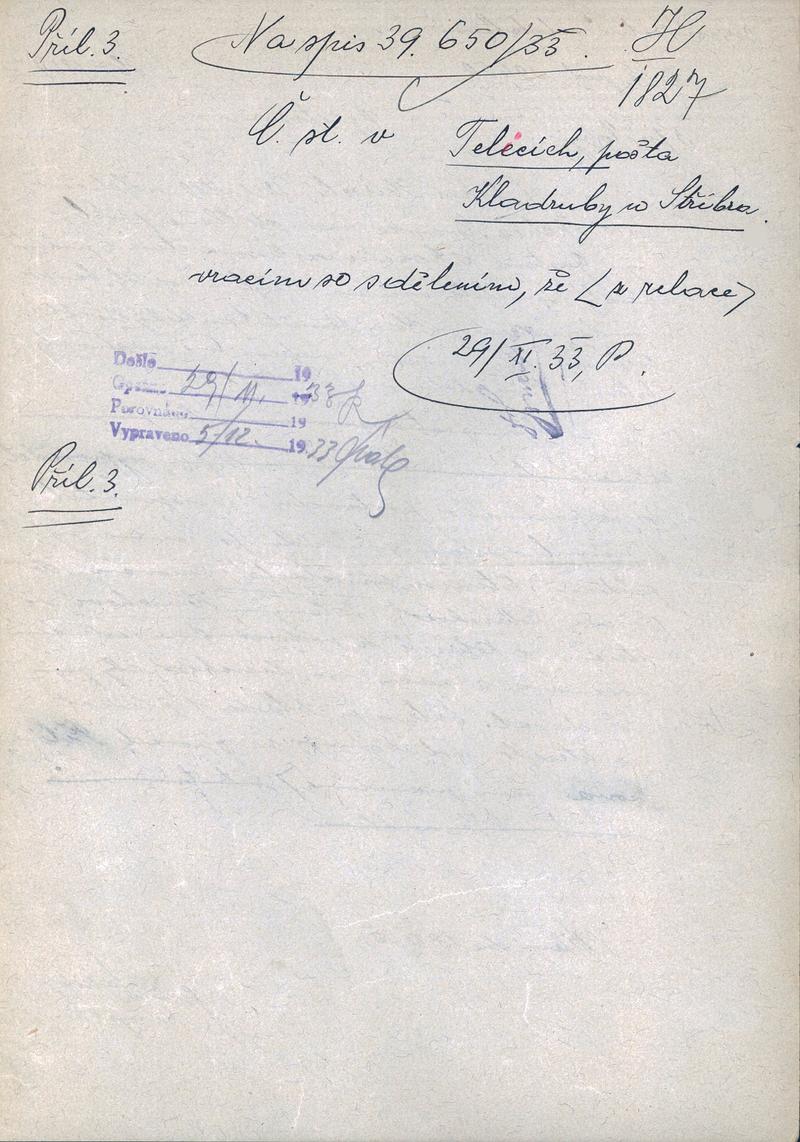 Příl. 3.
Na spis 39.650/33.
H
1827
Č. st. v Telecích, pošta
Kladruby u Stříbra.
vracím se sdělením, že (z relace)
29/XI. 33, P.
Došlo 19
Opsáno 29/11. 1933
Porovnáno 19
Vypraveno 5/12. 1933
Příl. 3.